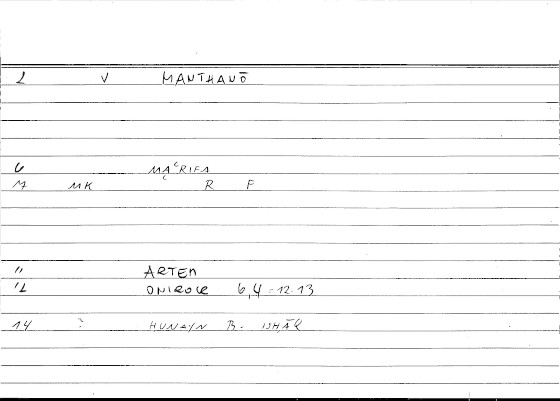 2 V MANTHANŌ
6 MAʿRIFA
7 MK R F
11 ARTEM
12 ONIROCR 6,4 = 12-13
14 ? HUNAYN B. ISHĀQ